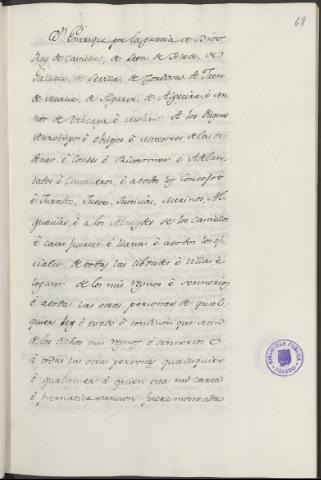 68
Dn. Enrique por la gracia de Dios
Rey de Castilla, de Leon de Toledo, de
Gallicia de Sevilla, de Cordova, de Jaen
de Murcia, de Algarve, de Algecira, è Sen
nor de Vizcaya è Molina A los Duques
Arzobispos è Obispos è Maestres de las Or
denes è Condes è Ricosomes è Adelan
tados è Cavalleros, è a todos los Concejos
è Jurados, Jueces, Justicias, Merinos, Al
guaciles è a los Alcaydes de los Castillos
è Casas fuertes è llanas è a todos los ofi
ciales de todas las Cibdades è Villas è
logares de los mis regnos è sennorios
è a todas las otras personas de qual
quier ley è estado è condicion que sean
de los dichos mis regnos è sennorios è
à todas las otras personas qualesquier
è qualquiera à quien esta mi carta
è prematica sancion fuere mostrada
BIBLIOTECA PUBLICA
TOLEDO